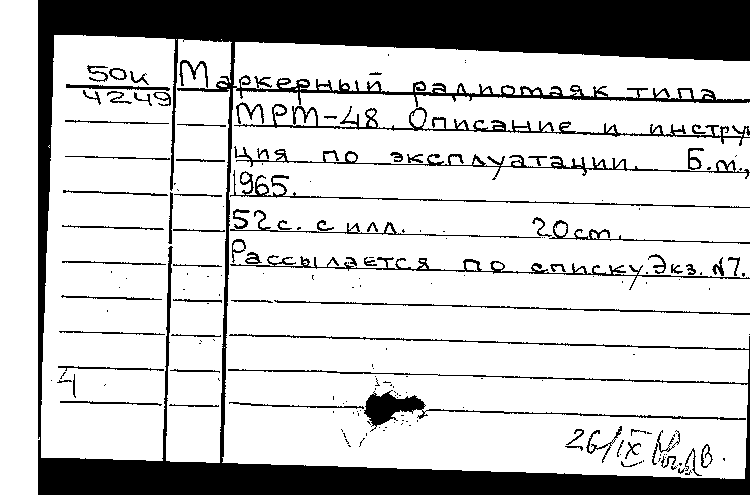 50к Маркерный радиомаяк типа
4249 МРМ-48. Описание и инстру
ция по эксплуатации. Б.м.,
1965.
52с. с илл. 20ст.
Рассылается по списку. Экз. №7.
4
26/IX